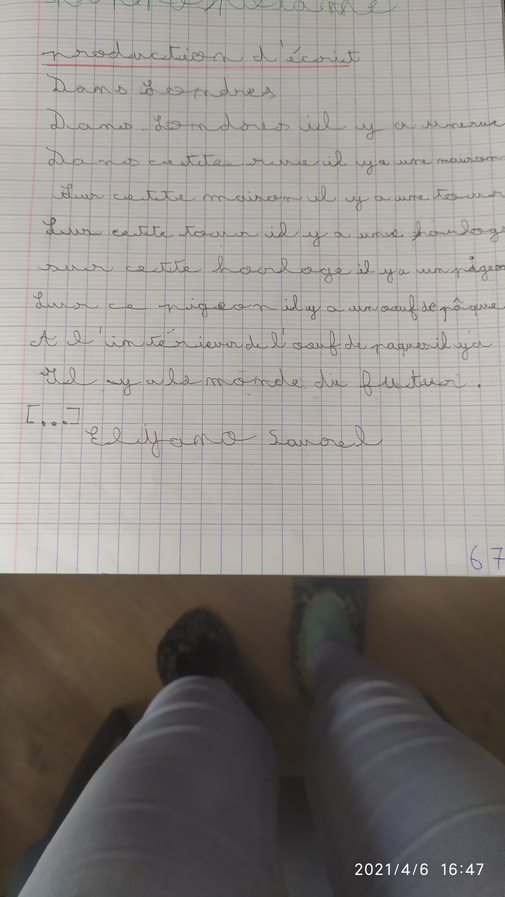 production d'écrit
Dans Londres
Dans Londres il y a une rue
Dans cette rue il y a une maison
Sur cette maison il y a une tour
Sur cette tour il y a une horloge
sur cette horloge il y a un pigeon
Sur ce pigeon il y a un oeuf de pâque
A l'intérieur de l'oeuf de paque il y a
Il y a le monde du futur.
[...]
67
2021/4/6 16:47